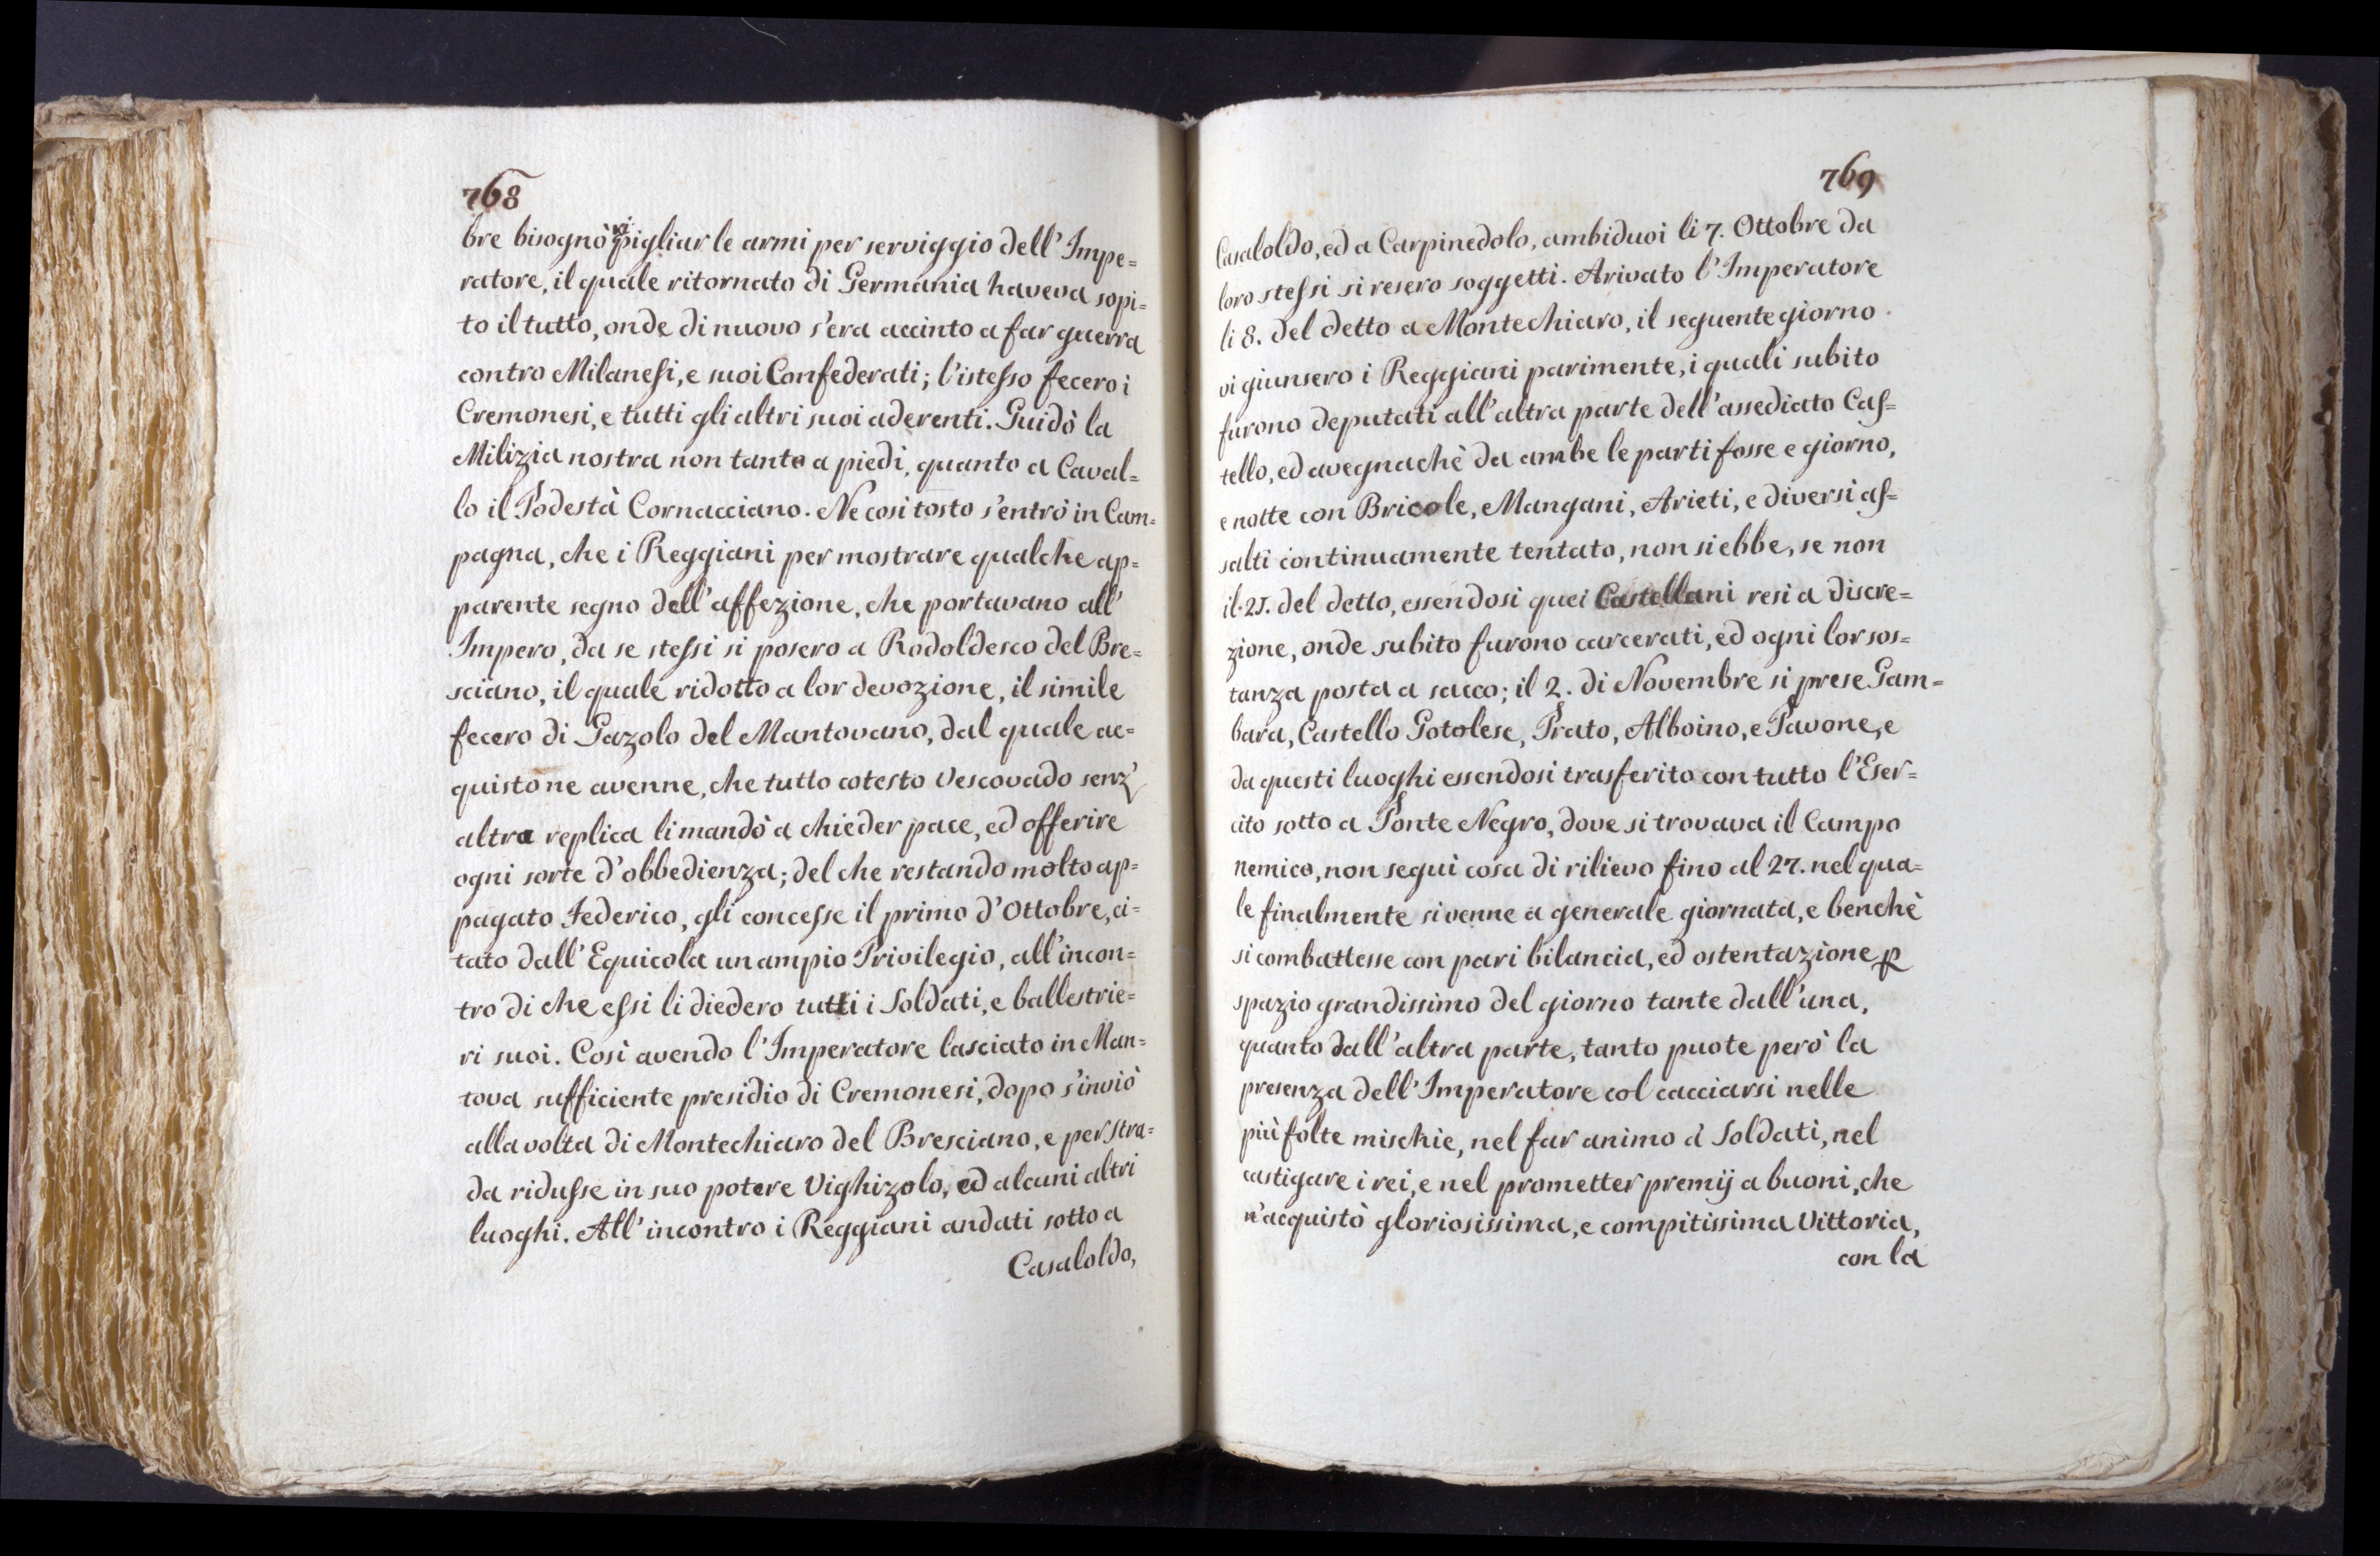 768
bre bisognò ripigliar le armi per serviggio dell' Impe=
ratore, il quale ritornato di Germania haveva sopi=
to il tutto, onde di nuovo s'era accinto a far guerra
contro Milanesi, e suoi Confederati; l'istesso fecero i
Cremonesi, e tutti gli altri suoi aderenti. Guidò la
Milizia nostra non tanto a piedi, quanto a Caval=
lo il Podestà Cornacciano. Ne cosi tosto s'entrò in Cam=
pagna, che i Reggiani per mostrare qualche ap=
parente segno dell'affezione, che portavano all'
Impero, da se stessi si posero a Rodoldesco del Bre=
sciano, il quale ridotto a lor devozione, il simile
fecero di Gazolo del Mantovano, dal quale ac=
quisto ne avenne, che tutto cotesto Vescovado senz'
altra replica li mandò a chieder pace, ed offerire
ogni sorte d'obbedienza; del che restando molto ap=
pagato Federico, gli concesse il primo d'Ottobre, ci=
tato dall' Equicola un ampio Privilegio, all'incon=
tro di che essi li diedero tutti i Soldati, e ballestrie=
ri suoi. Così avendo l'Imperatore lasciato in Man=
tova sufficiente presidio di Cremonesi, dopo s'inviò
alla volta di Montechiaro del Bresciano, e per stra=
da ridusse in suo potere Vighizolo, ed alcuni altri
luoghi. All'incontro i Reggiani andati sotto a
Casaloldo,
769
Casaloldo, ed a Carpinedolo, ambiduoi li 7. Ottobre da
loro stessi si resero soggetti. Arivato l'Imperatore
li 8. del detto a Montechiaro, il seguente giorno
vi giunsero i Reggiani parimente, i quali subito
furono deputati all'altra parte dell'assediato Cas=
tello, ed avegnachè da ambe le parti fosse e giorno,
e notte con Bricole, Mangani, Arieti, e diversi as=
salti continuamente tentato, non si ebbe, se non
il 21. del detto, essendosi quei Castellani resi a discre=
zione, onde subito furono carcerati, ed ogni lor sos=
tanza posta a sacco; il 2. di Novembre si prese Gam=
bara, Castello Gotolese, Prato, Alboino, e Pavone, e
da questi luoghi essendosi trasferito con tutto l'Eser=
cito sotto a Ponte Negro, dove si trovava il Campo
nemico, non seguì cosa di rilievo fino al 27. nel qua=
le finalmente si venne a generale giornata, e benchè
si combattesse con pari bilancia, ed ostentazione ꝑ
spazio grandissimo del giorno tante dall'una,
quanto dall'altra parte, tanto puote però la
presenza dell'Imperatore col cacciarsi nelle
più folte mischie, nel far animo à Soldati, nel
castigare i rei, e nel prometter premij a buoni, che
n'acquistò gloriosissima, e compitissima Vittoria,
con la